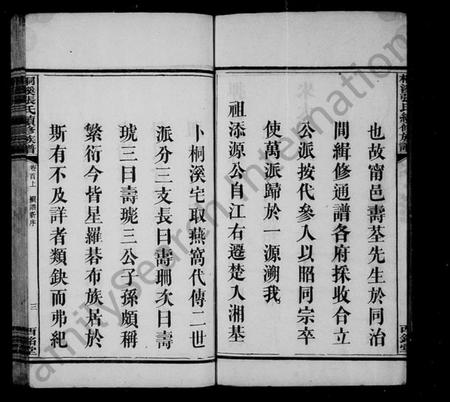 也故甯邑壽荃先生於同治
間緝修通譜各府採收合立
公派按代參入以昭同宗卒
使萬派歸於一源溯我
祖添源公自江右遷楚入湘基
卜桐溪宅取燕窩代傳二世
派分三支長曰壽珊次曰壽
琥三曰壽琁三公子孫頗稱
繁衍今皆星羅碁布族居於
斯有不及詳者類缺而弗紀
桐溪張氏續修族譜
卷首上
續譜新序
三
西銘堂
FamilySearch International